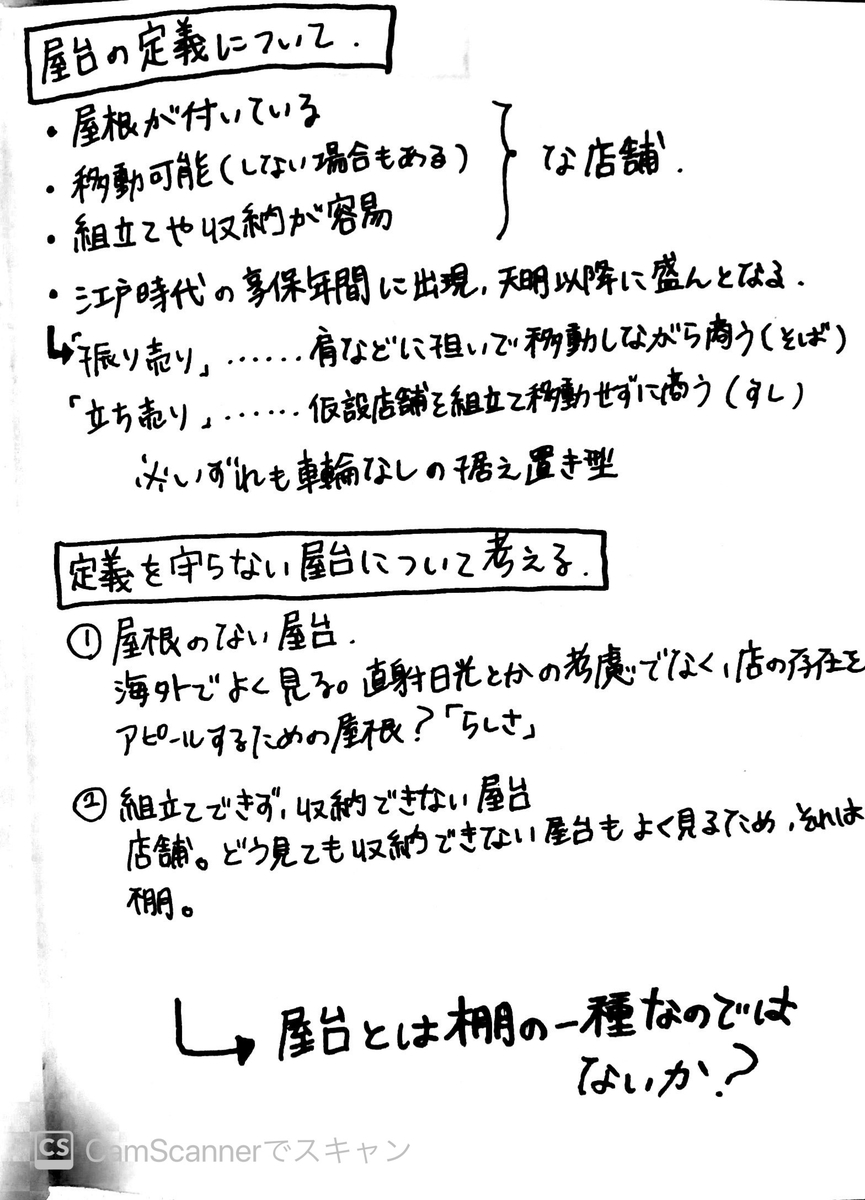 屋台の定義について.
・屋根が付いている
・移動可能(しない場合もある)
・組立てや収納が容易
な店舗.
・江戸時代の享保年間に出現,天明以降に盛んとなる.
↳「振り売り」……肩などに担いで移動しながら商う(そば)
「立ち売り」……仮設店舗を組立て移動せずに商う(すし)
※いずれも車輪なしの据え置き型
定義を守らない屋台について考える.
①屋根のない屋台.
海外でよく見る。直射日光とかの考慮でなく,店の存在を
アピールするための屋根?「らしさ」
②組立てできず,収納できない屋台
店舗。どう見ても収納できない屋台もよく見るため,それは
棚。
↳屋台とは棚の一種なのでは
ないか?
CS CamScannerでスキャン